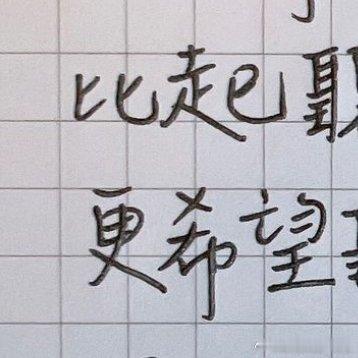 比起
更希望